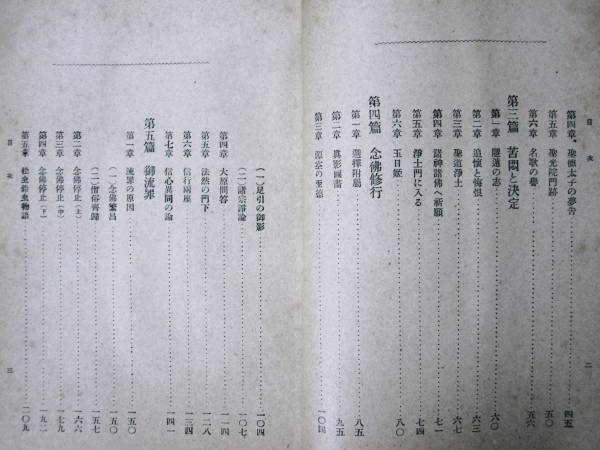 目次
第四章 聖德太子の夢告 四五
第五章 聖光院門跡 五〇
第六章 名歌の譽 五六
第三篇 苦悶と決定
第一章 隧遠の志 六〇
第二章 追懷と悔恨 六三
第三章 聖道淨土 六七
第四章 諸神諸佛へ祈願 七一
第五章 淨土門に入る 七四
第六章 玉日姬 八〇
第四篇 念佛修行
第一章 選擇附屬 八五
第二章 眞影圖畵 九五
第三章 源空の至德 一〇四
二
(一)足引の御影 一〇四
(二)諸宗諍論 一〇七
第四章 大原問答 一一四
第五章 法然の門下 一二八
第六章 信行兩座 一三四
第七章 信心異同の論 一四一
第五篇 御流罪
第一章 流罪の原因 一五〇
(一)念佛繁昌 一五〇
(二)僧俗奔歸 一五七
第二章 念佛停止(上) 一六六
第三章 念佛停止(中) 一七九
第四章 念佛停止(下) 一九二
第五章 松虫鈴虫物語 二〇九
目次
三